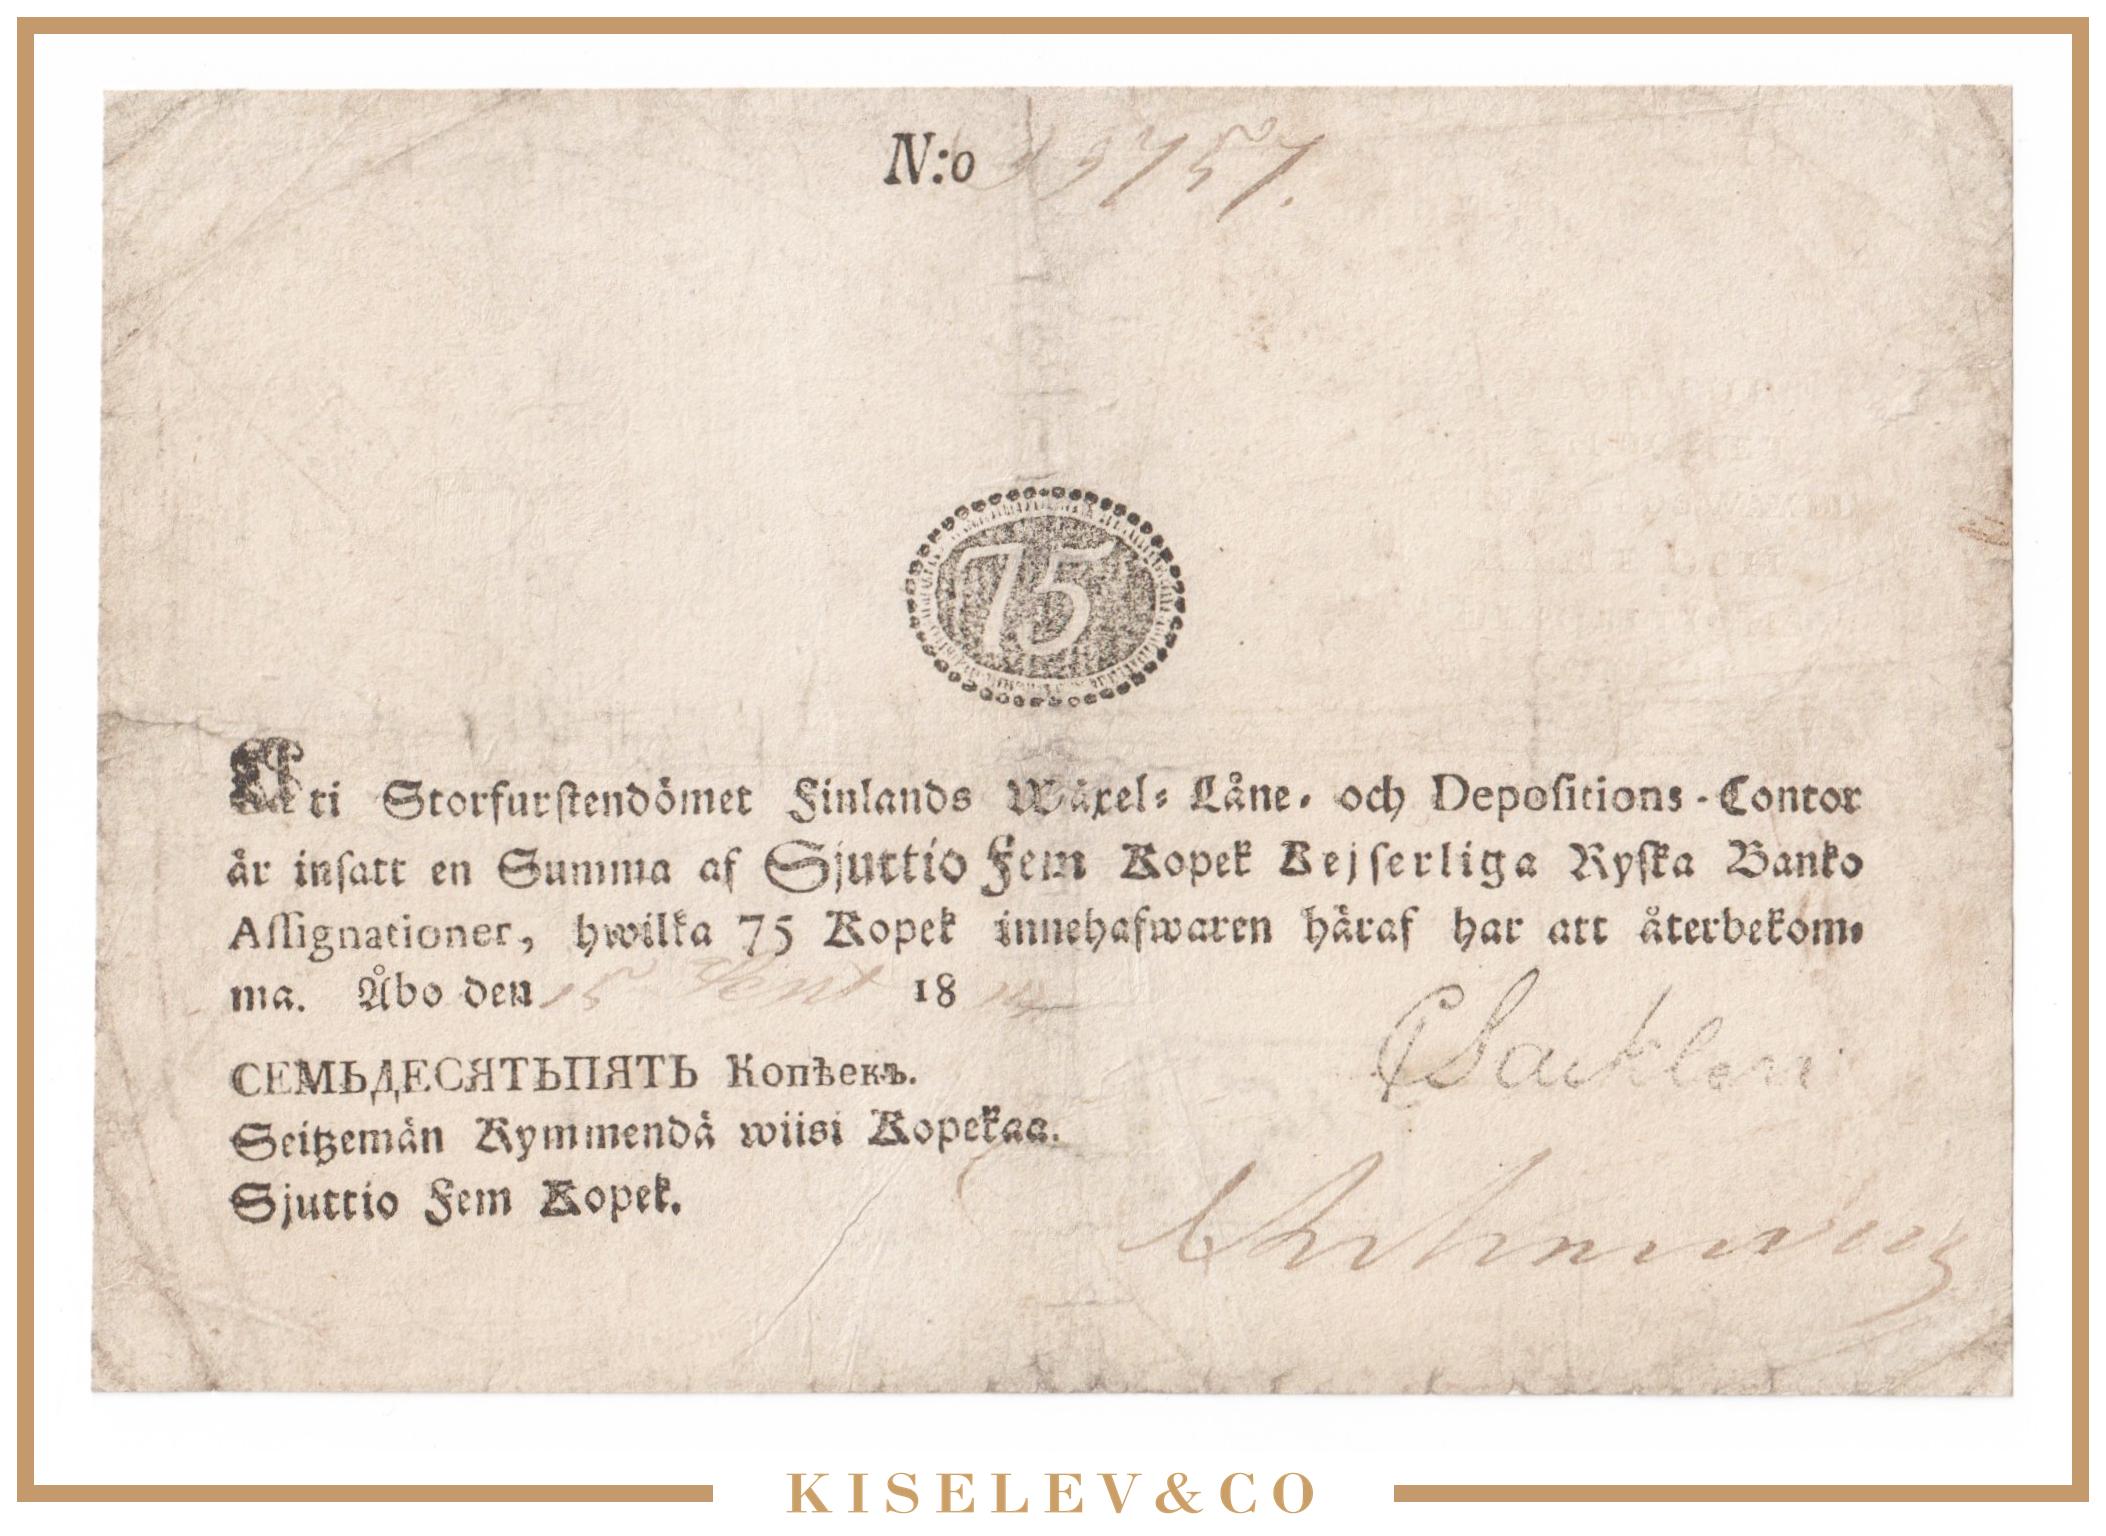 N:o
75
Att i Storfurstendömet Finlands Wäxel- Låne- och Depositions-Contor
är insatt en Summa af Sjuttio Fem Kopek Kejserliga Ryska Banko
Assignationer, hwilka 75 Kopek innehafwaren häraf har att återbekom-
ma. Åbo den 15 Sept 18
СЕМЬДЕСЯТЬПЯТЬ Копѣекъ.
Seitzemän Kymmendä wiisi Kopekaa.
Sjuttio Fem Kopek.
KISELEV&CO